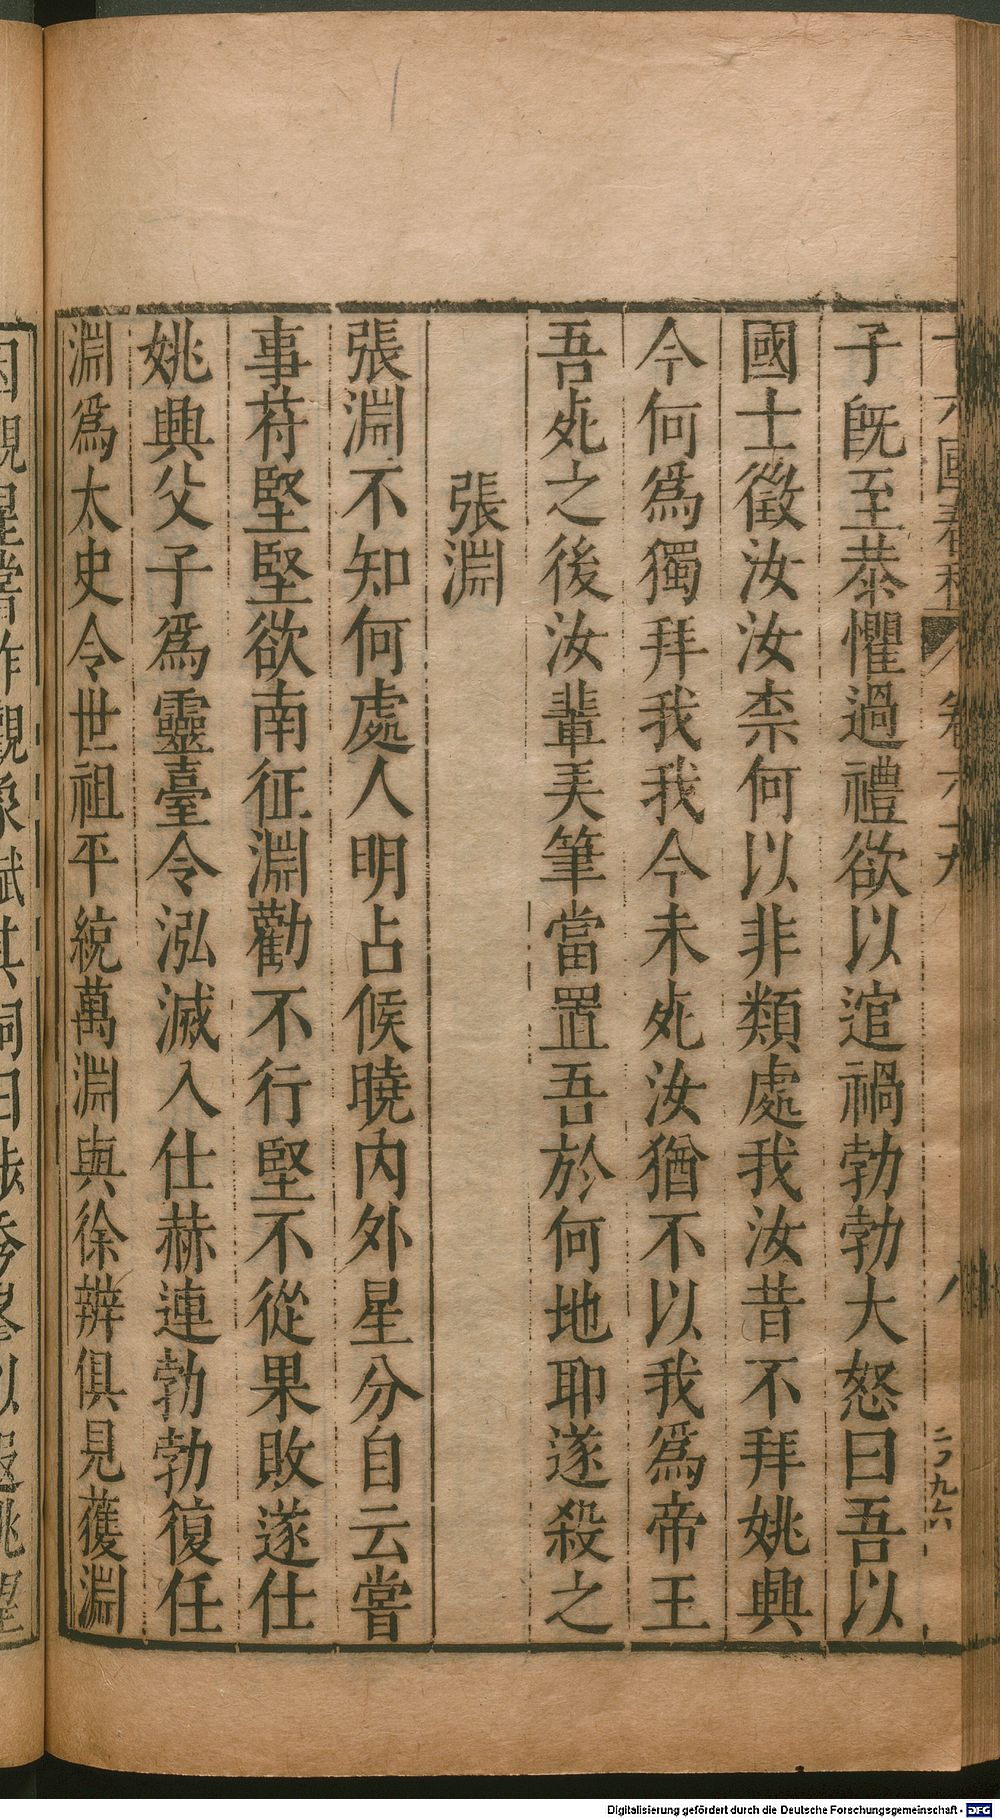 十六國春秋 卷六十九 八 二ノ九六
子旣至恭懼過禮欲以逭禍勃勃大怒曰吾以
國士徵汝汝柰何以非類處我汝昔不拜姚興
今何爲獨拜我我今未死汝猶不以我爲帝王
吾死之後汝輩美筆當置吾於何地耶遂殺之
張淵
張淵不知何處人明占候曉內外星分自云嘗
事苻堅堅欲南征淵勸不行堅不從果敗遂仕
姚興父子爲靈臺令泓滅入仕赫連勃勃復任
淵爲太史令世祖平統萬淵與徐辨俱見獲淵
Digitalisierung gefördert durch die Deutsche Forschungsgemeinschaft - DFG